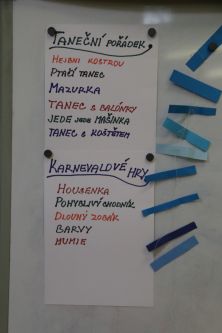 TANEČNÍ POŘÁDEK
HEJBNI KOSTROU
PTAČÍ TANEC
MAZURKA
TANEC S BALÓNKY
JEDE JEDE MAŠINKA
TANEC S KOŠTĚTEM
KARNEVALOVÉ HRY
HOUSENKA
POHYBLIVÝ CHODNÍK
DLOUHÝ ZOBÁK
BARVY
MUMIE